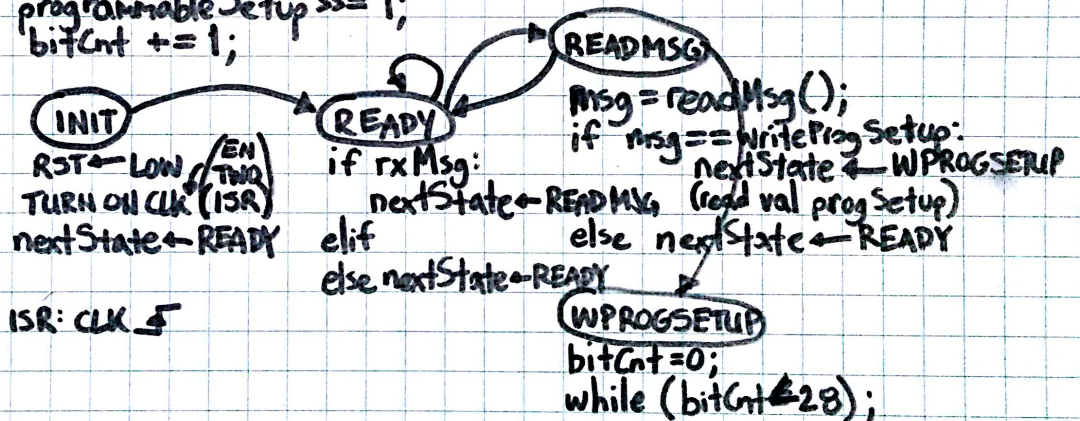 programmableSetup >>= 1;
bitCnt += 1;
INIT
RST ← LOW
TURN ON CLK (EN TWO ISR)
nextState ← READY
ISR: CLK
READY
if rxMsg:
nextState ← READMSG
elif
else nextState ← READY
READMSG
msg = readMsg();
if msg == WriteProgSetup:
nextState ← WPROGSETUP
(read val progSetup)
else nextState ← READY
WPROGSETUP
bitCnt = 0;
while (bitCnt < 28);